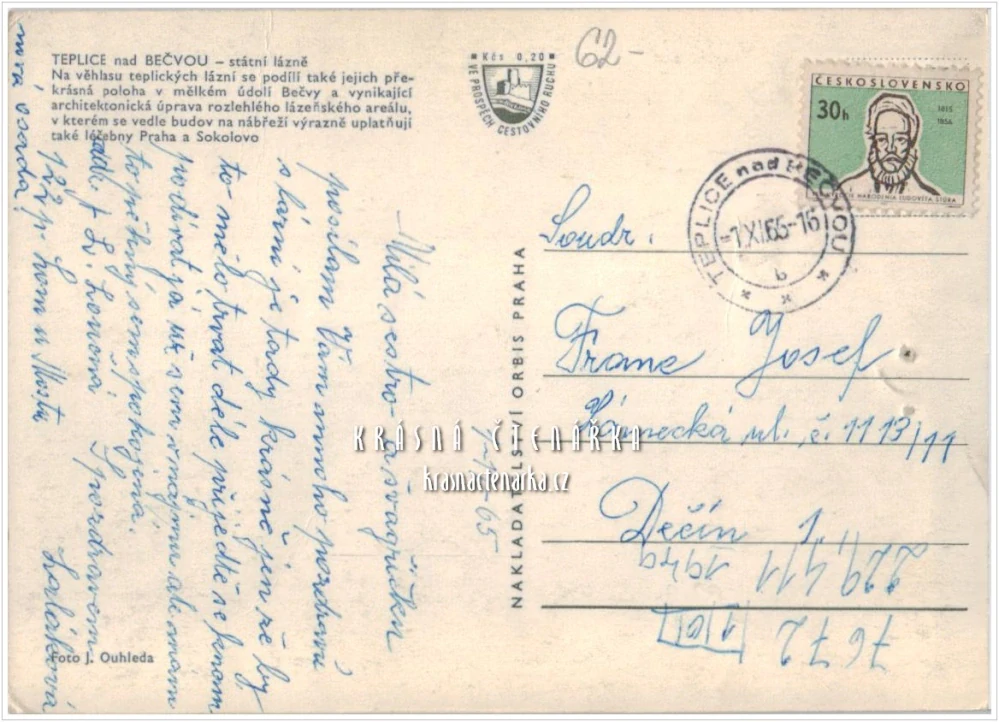 TEPLICE nad BEČVOU – státní lázně
Na věhlasu teplických lázní se podílí také jejich pře-
krásná poloha v mělkém údolí Bečvy a vynikající
architektonická úprava rozlehlého lázeňského areálu,
v kterém se vedle budov na nábřeží výrazně uplatňují
také léčebny Praha a Sokolovo
Kčs 0,20
VE PROSPĚCH CESTOVNÍHO RUCHU
62-
ČESKOSLOVENSKO
30h
1815
1856
NARODENIA ĽUDOVÍTA ŠTÚRA
TEPLICE nad BEČVOU
-7.XI.65-16
b
7-11-65
Milá sestro a švagříčku
posílám Vám mnoho pozdravů
s lázní je tady krásně jen že by
to mělo trvat déle přijeďte se k nám
podívat já už sem
to pěkný sem spokojena.
Lonová S pozdravem
Zaláková
NAKLADATELSTVÍ ORBIS PRAHA
Soudr.
Franc Josef
ul. č. 1113/11
Děčín 1,
229 411
1970
7672
KRÁSNÁ ČTENÁŘKA
krasnactenarka.cz
Foto J. Ouhleda